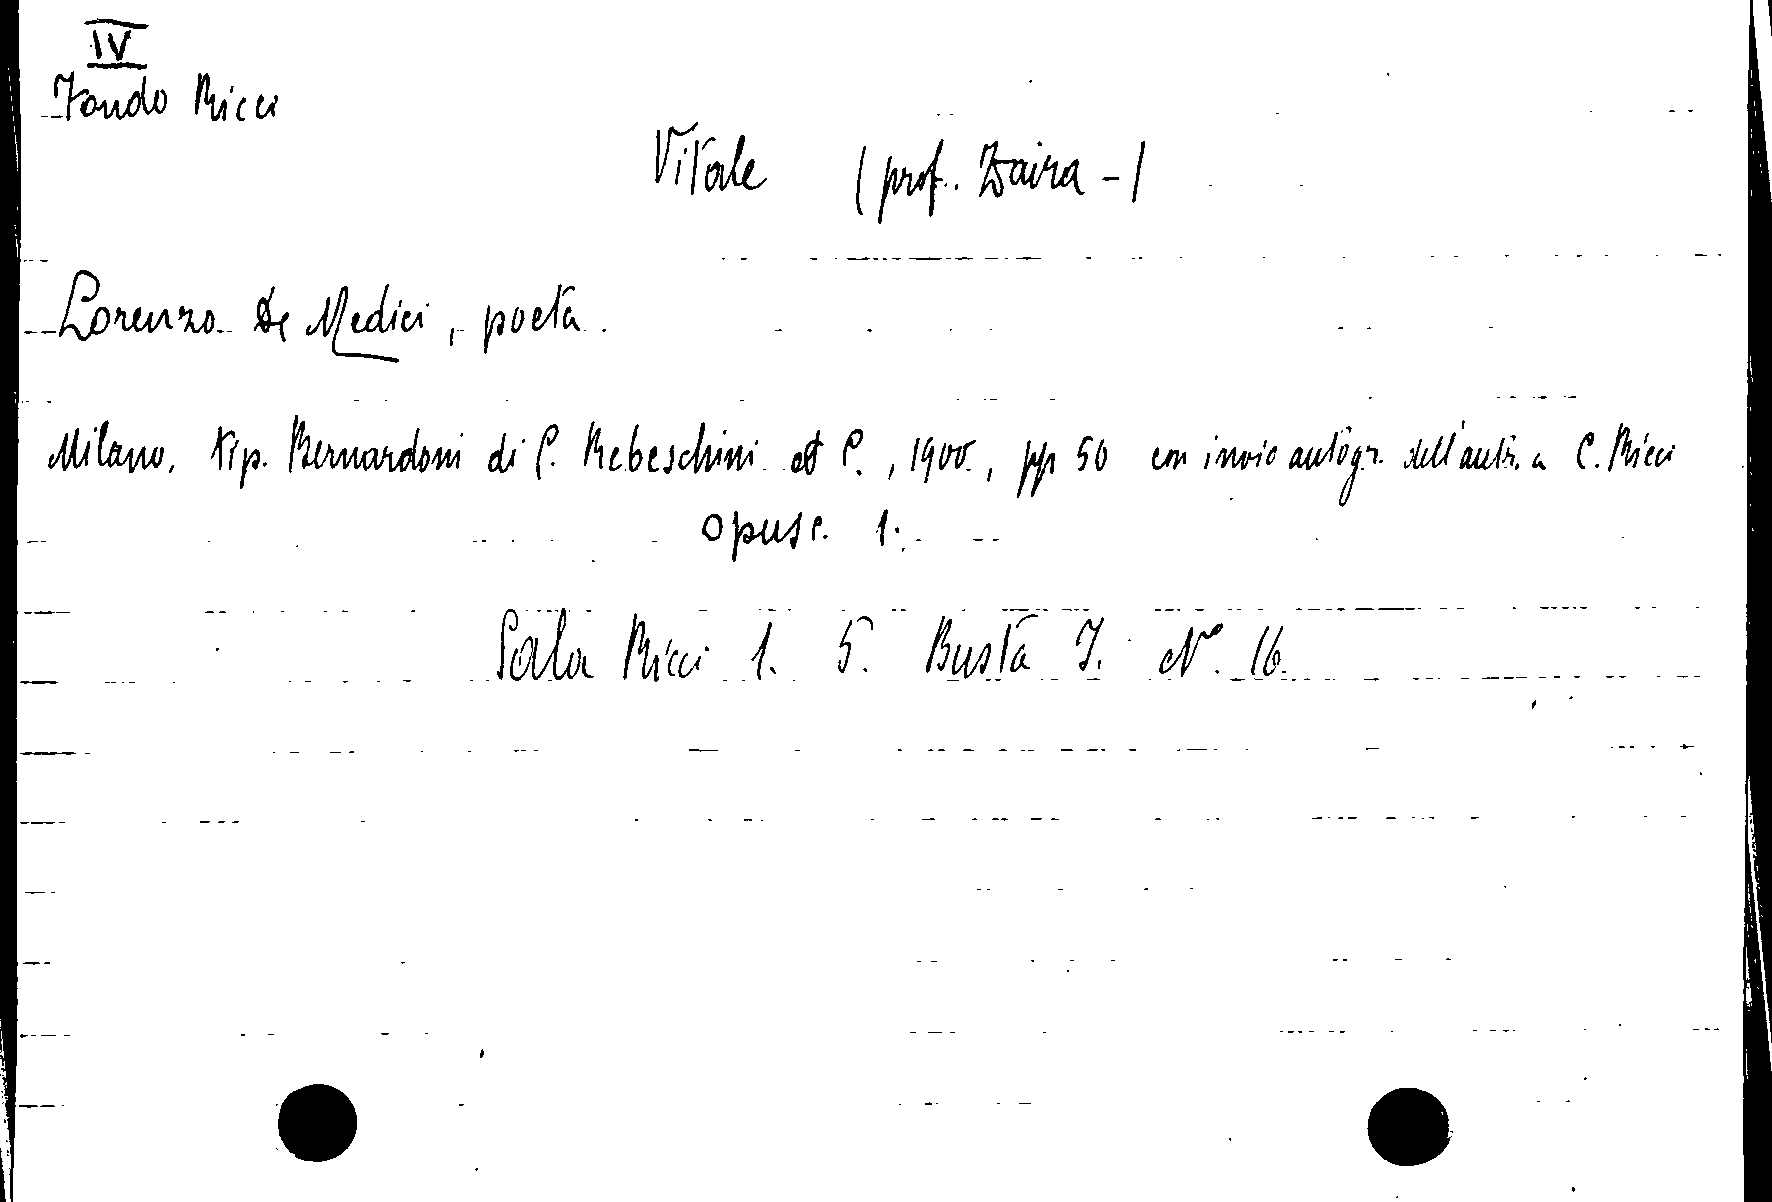 IV
Fondo Ricci
Vitale (prof. Zaira -)
Lorenzo De Medici, poeta.
Milano. tip. Bernardoni di C. Rebeschini et C., 1900, pp 50 con invio autogr. dell'autr. a C. Ricci
opusc. 1.
Sala Ricci 1. 5. Busta I. N° 16.